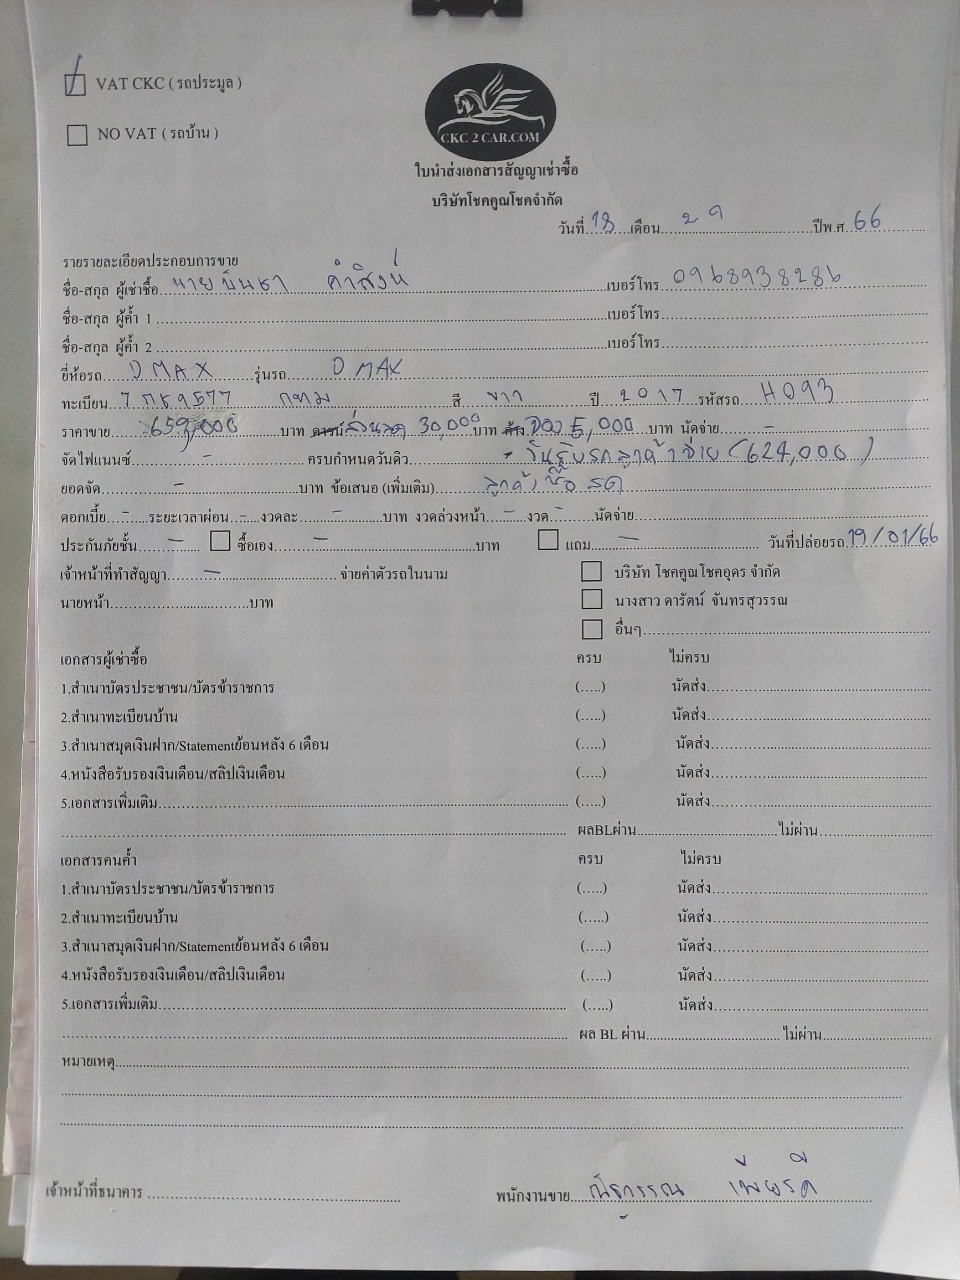 VAT CKC ( รถประมูล )
NO VAT ( รถบ้าน )
CKC 2 CAR.COM
ใบนำส่งเอกสารสัญญาเช่าซื้อ
บริษัทโชคคูณโชคจำกัด
วันที่ 18 เดือน ปีพ.ศ. 66
รายรายละเอียดประกอบการขาย
ชื่อ-สกุล ผู้เช่าซื้อ นาย คำสิงห์ เบอร์โทร 0968938286
ชื่อ-สกุล ผู้ค้ำ 1 เบอร์โทร
ชื่อ-สกุล ผู้ค้ำ 2 เบอร์โทร
ยี่ห้อรถ D MAX รุ่นรถ D MAX
ทะเบียน กทม สี ขาว ปี 2017 รหัสรถ H093
ราคาขาย 659,000 บาท ดาวน์ ส่วนลด 30,000 บาท ค้าง จอง 5,000 บาท นัดจ่าย -
จัดไฟแนนซ์ - ครบกำหนดวันดิว - วันรับรถลูกค้าจ่าย (624,000)
ยอดจัด - บาท ข้อเสนอ (เพิ่มเติม) ลูกค้าซื้อสด
ดอกเบี้ย - ระยะเวลาผ่อน - งวดละ - บาท งวดล่วงหน้า - งวด - นัดจ่าย
ประกันภัยชั้น - ซื้อเอง - บาท แถม - วันที่ปล่อยรถ 19/01/66
เจ้าหน้าที่ทำสัญญา - จ่ายค่าตัวรถในนาม บริษัท โชคคูณโชคอุดร จำกัด
นายหน้า บาท นางสาว ดารัตน์ จันทรสุวรรณ
อื่นๆ
เอกสารผู้เช่าซื้อ ครบ ไม่ครบ
1.สำเนาบัตรประชาชน/บัตรข้าราชการ (.....) นัดส่ง
2.สำเนาทะเบียนบ้าน (.....) นัดส่ง
3.สำเนาสมุดเงินฝาก/Statementย้อนหลัง 6 เดือน (.....) นัดส่ง
4.หนังสือรับรองเงินเดือน/สลิปเงินเดือน (.....) นัดส่ง
5.เอกสารเพิ่มเติม (.....) นัดส่ง
ผลBLผ่าน ไม่ผ่าน
เอกสารคนค้ำ ครบ ไม่ครบ
1.สำเนาบัตรประชาชน/บัตรข้าราชการ (.....) นัดส่ง
2.สำเนาทะเบียนบ้าน (.....) นัดส่ง
3.สำเนาสมุดเงินฝาก/Statementย้อนหลัง 6 เดือน (.....) นัดส่ง
4.หนังสือรับรองเงินเดือน/สลิปเงินเดือน (.....) นัดส่ง
5.เอกสารเพิ่มเติม (.....) นัดส่ง
ผล BL ผ่าน ไม่ผ่าน
หมายเหตุ
เจ้าหน้าที่ธนาคาร พนักงานขาย